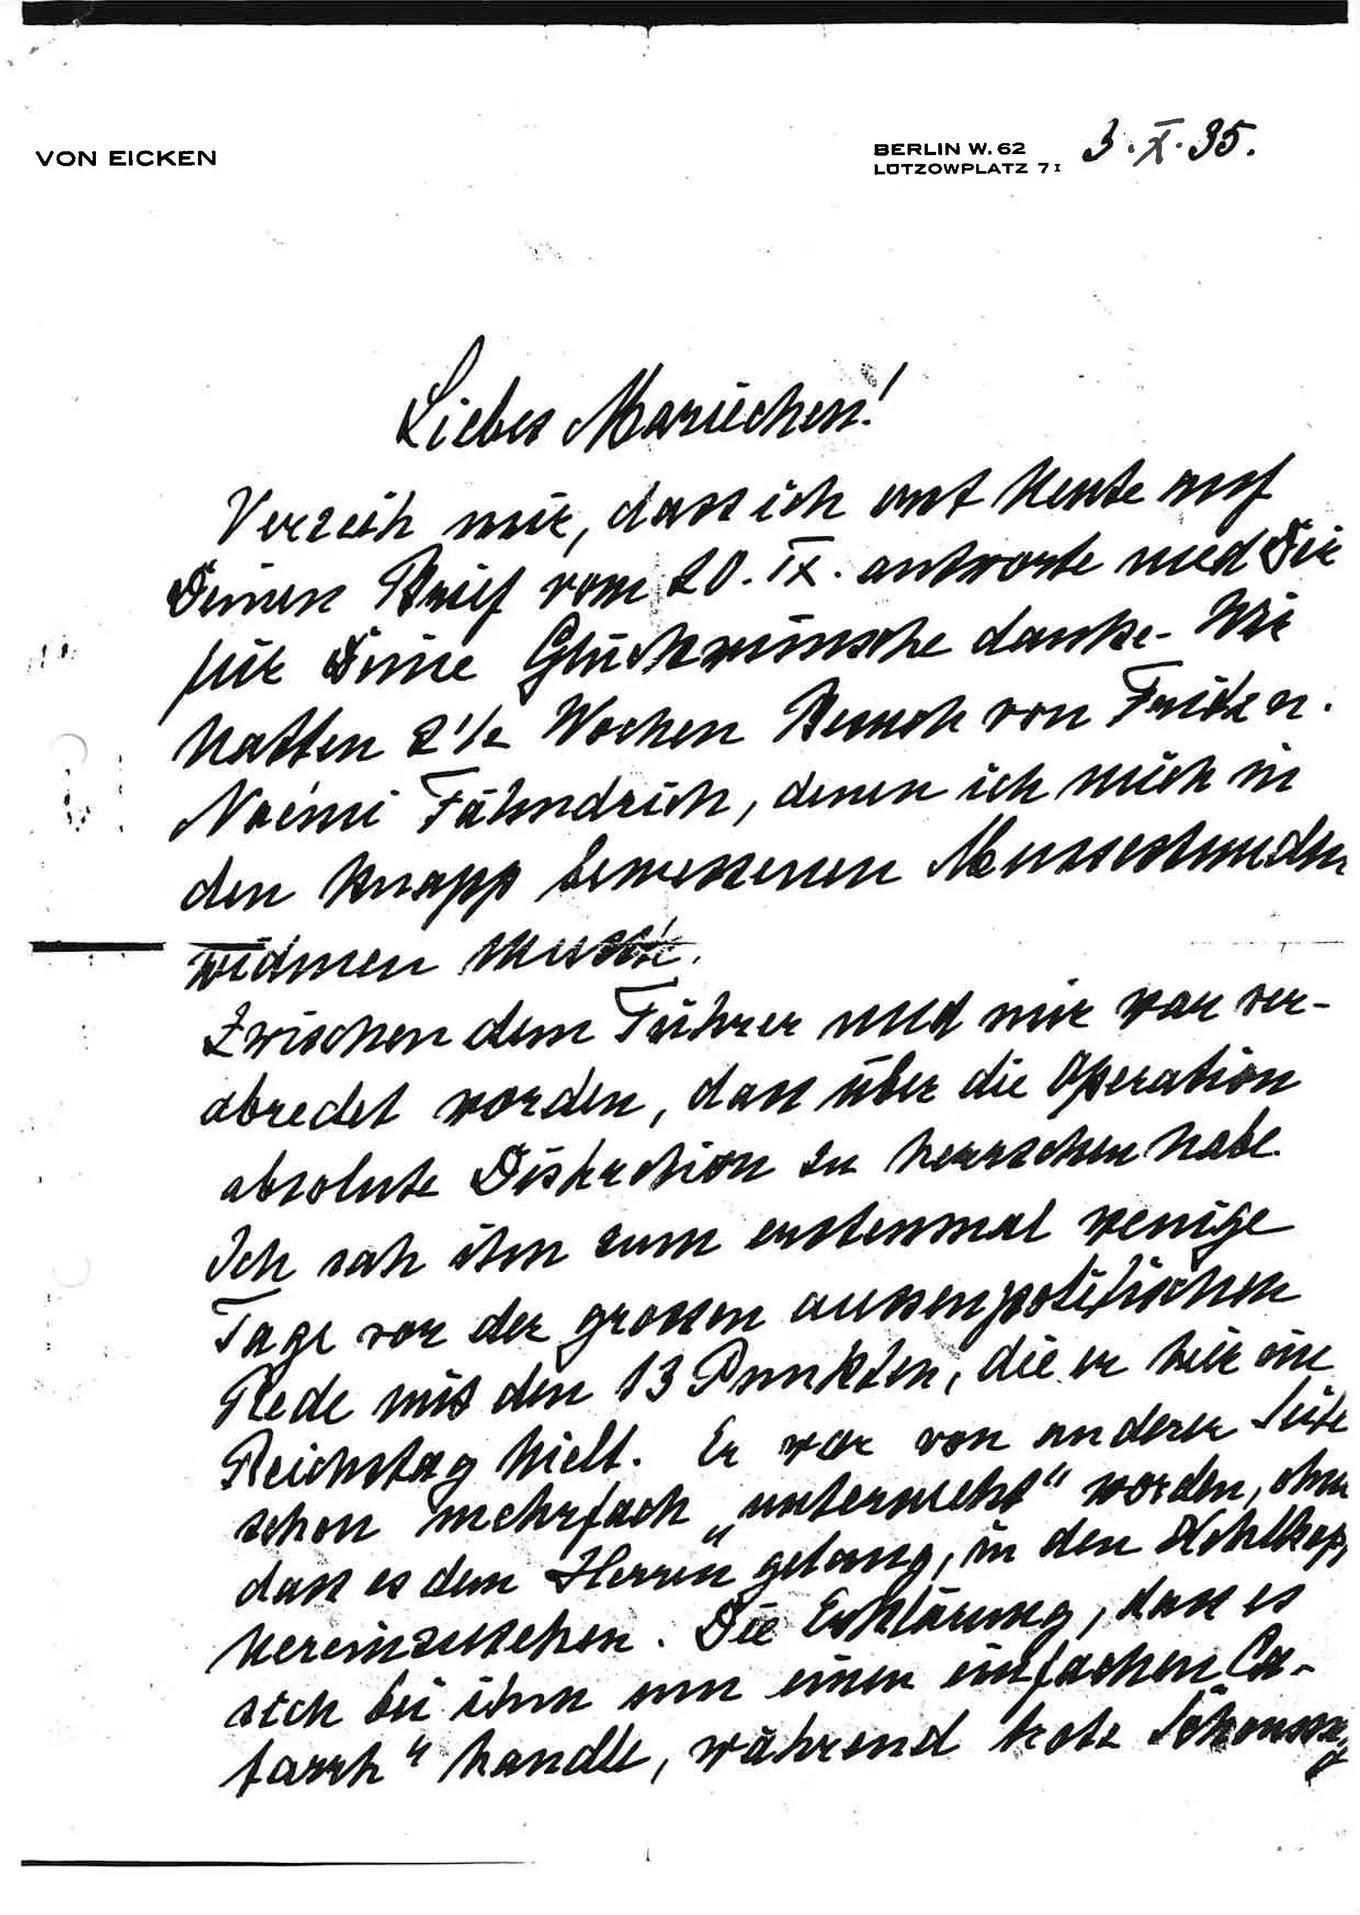 VON EICKEN
BERLIN W. 62
LÜTZOWPLATZ 7 I
3. X. 35.
Liebes Mariechen!
Verzeih mir, dass ich erst heute auf
Deinen Brief vom 20. IX. antworte und Dir
für Deine Glückwünsche danke. Wir
hatten 2 1/2 Wochen Besuch von Fritz u.
Noémi Fähndrich, denen ich mich in
den knapp bemessenen Mussestunden
widmen musste.
Zwischen dem Führer und mir war ver-
abredet worden, dass über die Operation
absolute Diskretion zu herrschen habe.
Ich sah ihn zum erstenmal wenige
Tage vor der grossen aussenpolitischen
Rede mit den 13 Punkten, die er hier im
Reichstag hielt. Er war von anderer Seite
schon mehrfach „untersucht" worden, ohne
dass es dem Herren gelang, in den Kehlkopf
hereinzusehen. Die Erklärung, dass es
sich bei ihm um einen einfachen Ca-
tarrh" handle, während trotz Schonung